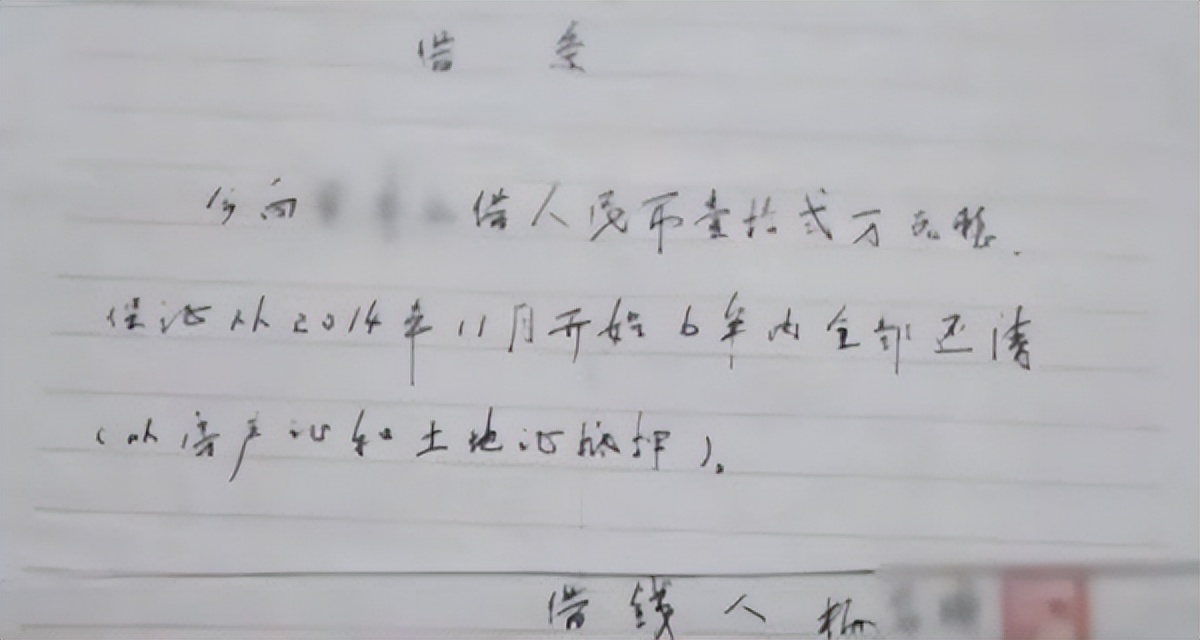 借条
今向借人民币壹拾弍万
保证从2014年11月开始6年内全部还清
(从房产证和土地证抵押)。
借钱人